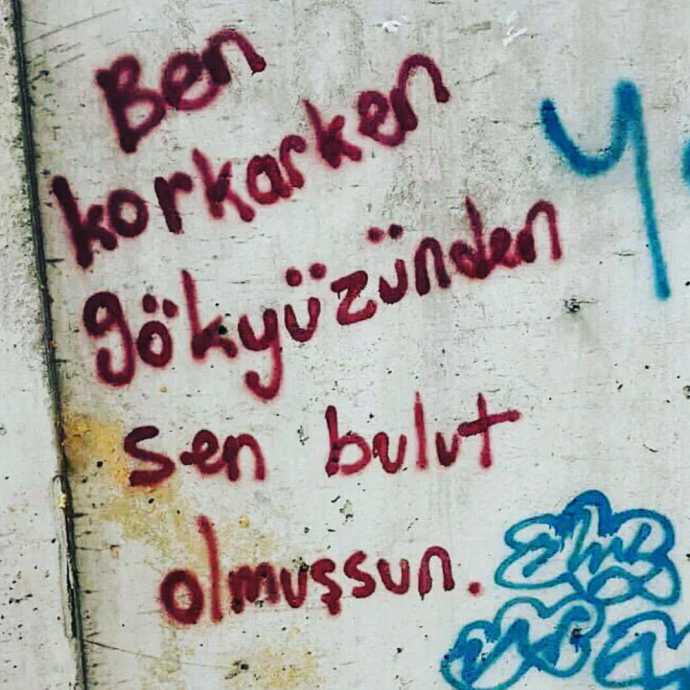 Ben
korkarken
gökyüzünden
sen bulut
olmuşsun.